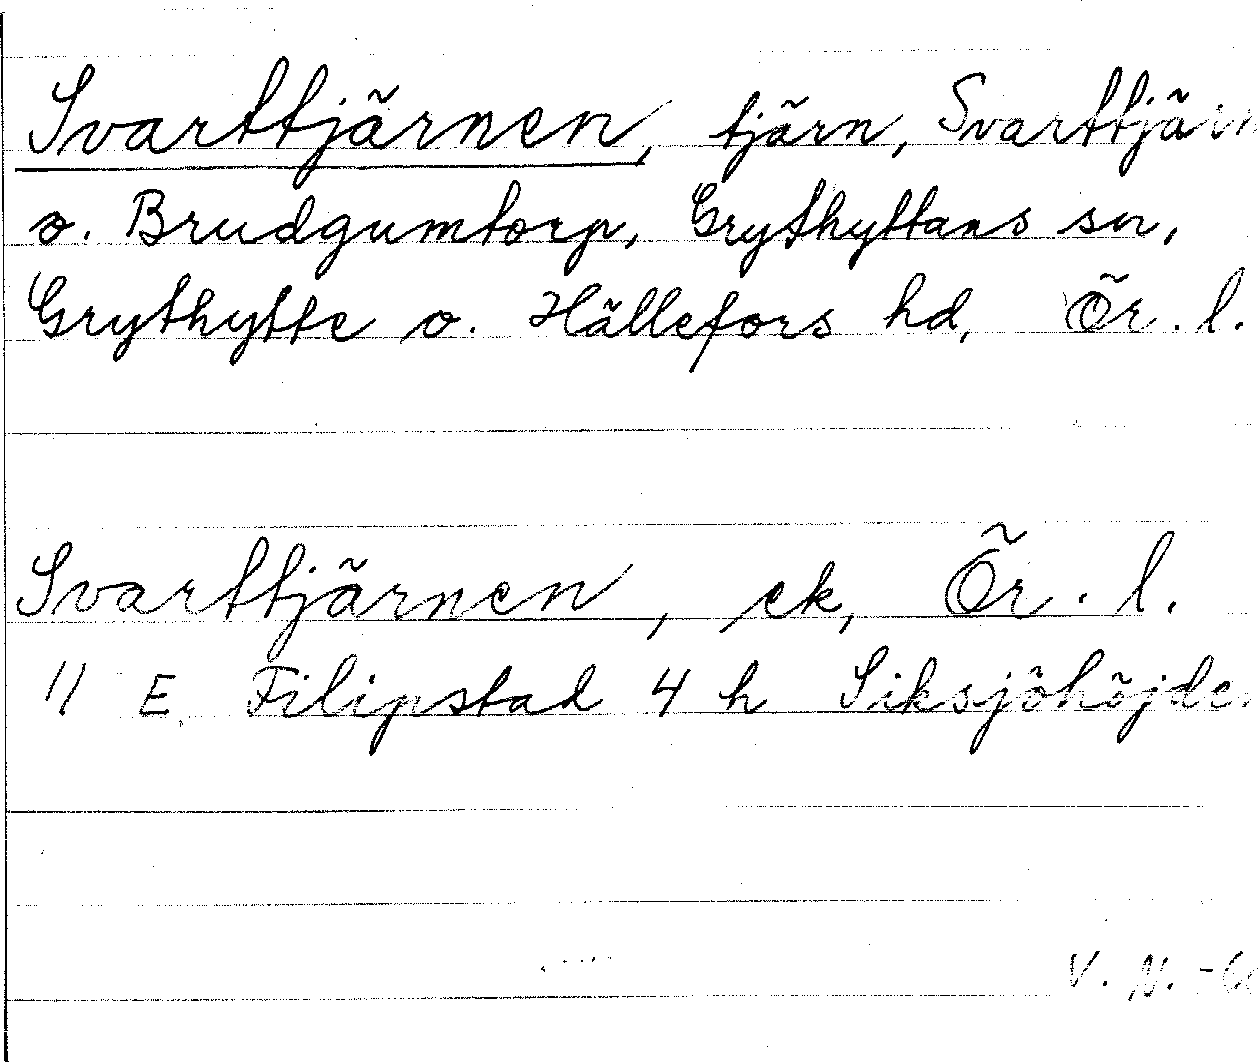 Svarttjärnen, tjärn, Svarttjärn
o. Brudgumtorp, Grythyttans sn,
Grythytte o. Hällefors hd, Ör. l.
Svarttjärnen, ek, Ör. l.
11 E Filipstad 4 h Siksjöhöjden
V. N.